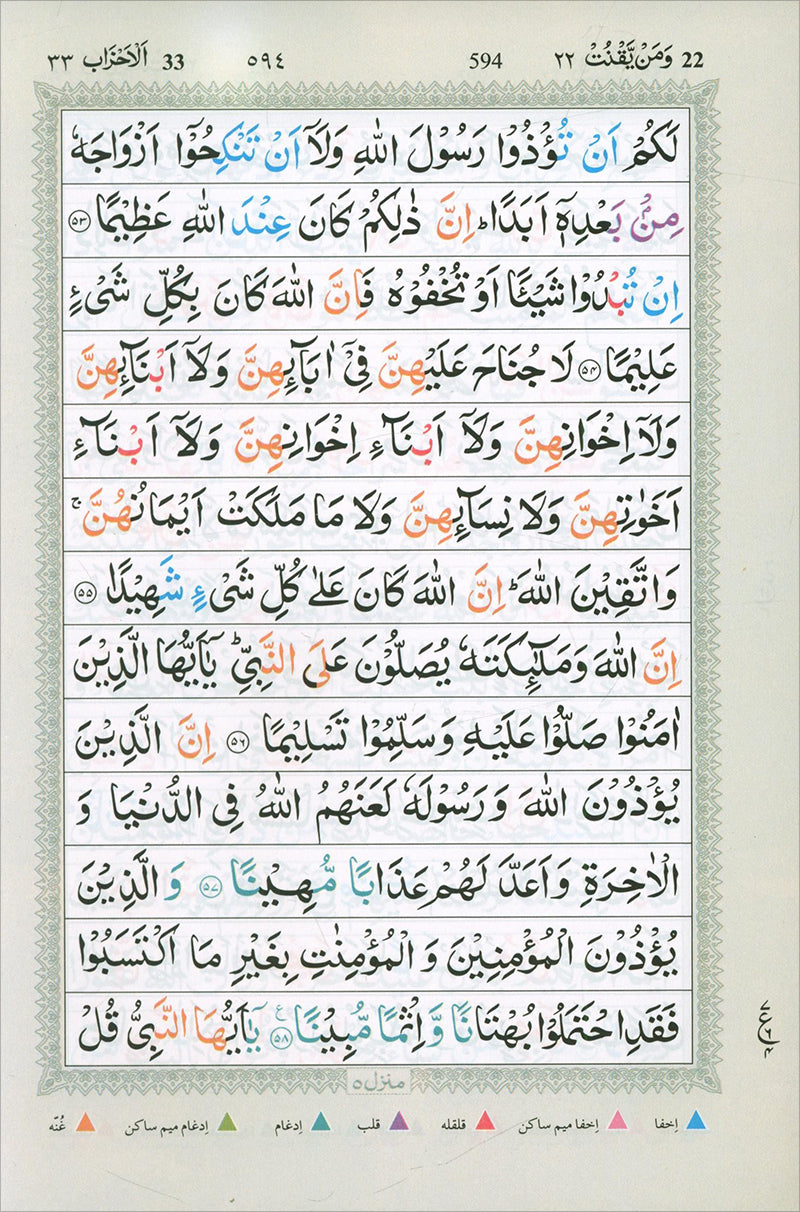 22 وَمَنْ يَّقْنُتْ ٢٢ 594 ٥٩٤ 33 اَلْاَحْزَاب ٣٣
لَكُمْ اَنْ تُؤْذُوْا رَسُوْلَ اللّٰهِ وَلَآ اَنْ تَنْكِحُوْٓا اَزْوَاجَهٗ
مِنْۢ بَعْدِهٖٓ اَبَدًا ؕ اِنَّ ذٰلِكُمْ كَانَ عِنْدَ اللّٰهِ عَظِيْمًا ﴿۵۳﴾
اِنْ تُبْدُوْا شَيْـًٔا اَوْ تُخْفُوْهُ فَاِنَّ اللّٰهَ كَانَ بِكُلِّ شَىْءٍ
عَلِيْمًا ﴿۵۴﴾ لَا جُنَاحَ عَلَيْهِنَّ فِىْٓ اٰبَآئِهِنَّ وَلَآ اَبْنَآئِهِنَّ
وَلَآ اِخْوَانِهِنَّ وَلَآ اَبْنَآءِ اِخْوَانِهِنَّ وَلَآ اَبْنَآءِ
اَخَوٰتِهِنَّ وَلَا نِسَآئِهِنَّ وَلَا مَا مَلَكَتْ اَيْمَانُهُنَّ ۚ
وَاتَّقِيْنَ اللّٰهَ ؕ اِنَّ اللّٰهَ كَانَ عَلٰى كُلِّ شَىْءٍ شَهِيْدًا ﴿۵۵﴾
اِنَّ اللّٰهَ وَمَلٰٓئِكَتَهٗ يُصَلُّوْنَ عَلَى النَّبِىِّ ؕ يٰٓاَيُّهَا الَّذِيْنَ
اٰمَنُوْا صَلُّوْا عَلَيْهِ وَسَلِّمُوْا تَسْلِيْمًا ﴿۵۶﴾ اِنَّ الَّذِيْنَ
يُؤْذُوْنَ اللّٰهَ وَرَسُوْلَهٗ لَعَنَهُمُ اللّٰهُ فِى الدُّنْيَا وَ
الْاٰخِرَةِ وَاَعَدَّ لَهُمْ عَذَابًا مُّهِيْنًا ﴿۵۷﴾ وَ الَّذِيْنَ
يُؤْذُوْنَ الْمُؤْمِنِيْنَ وَ الْمُؤْمِنٰتِ بِغَيْرِ مَا اكْتَسَبُوْا
فَقَدِ احْتَمَلُوْا بُهْتَانًا وَّ اِثْمًا مُّبِيْنًا ﴿۵۸﴾ ع يٰٓاَيُّهَا النَّبِىُّ قُلْ
ع ٧ ٦ ٤
منزل ۵
اِخفا اِخفا میم ساکن قلقله قلب اِدغام اِدغام میم ساکن غُنّه